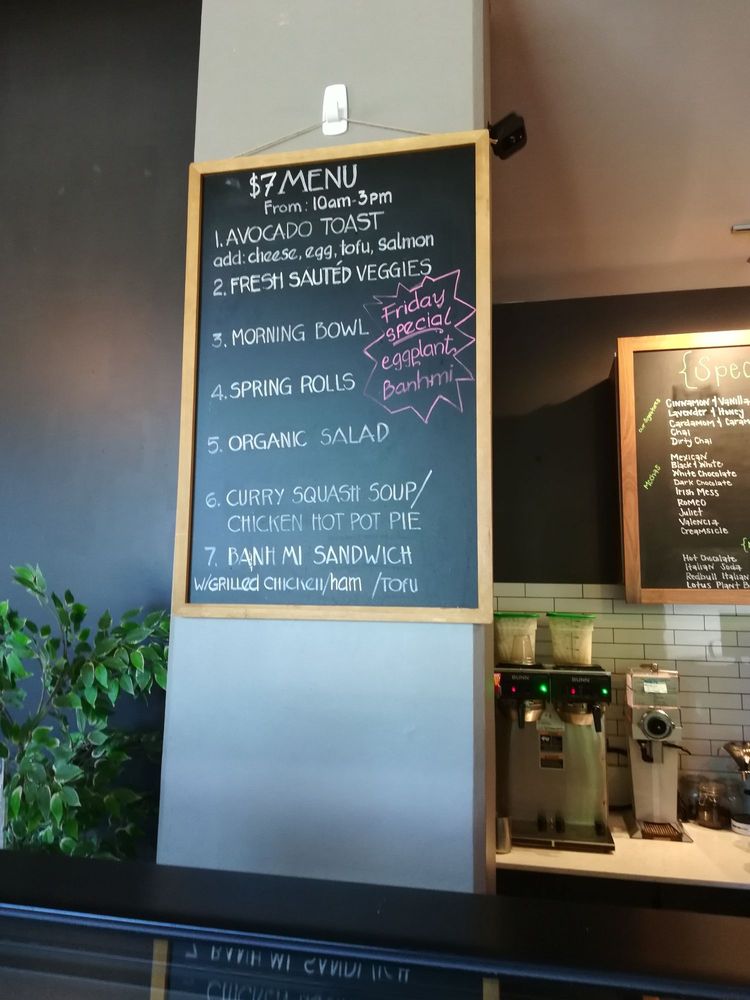 $7 MENU
From: 10am-3pm
1. AVOCADO TOAST
add: cheese, egg, tofu, salmon
2. FRESH SAUTÉD VEGGIES
3. MORNING BOWL
4. SPRING ROLLS
5. ORGANIC SALAD
6. CURRY SQUASH SOUP/
CHICKEN HOT POT PIE
7. BANH MI SANDWICH
W/GRILLED CHICKEN/ham /TOFU
Friday
special
eggplant
Banhmi
{Spec
our signatures
Cinnamon & Vanilla
Lavender & Honey
Cardamom & Caram
Chai
Dirty Chai
MOCHAS
Mexican
Black & White
White Chocolate
Dark Chocolate
Irish Mess
Romeo
Juliet
Valencia
Creamsicle
Hot Chocolate
Italian Soda
Redbull Italian
Lotus Plant B
BUNN
BUNN
7 BANH MI SANDWICH
CHICKEN